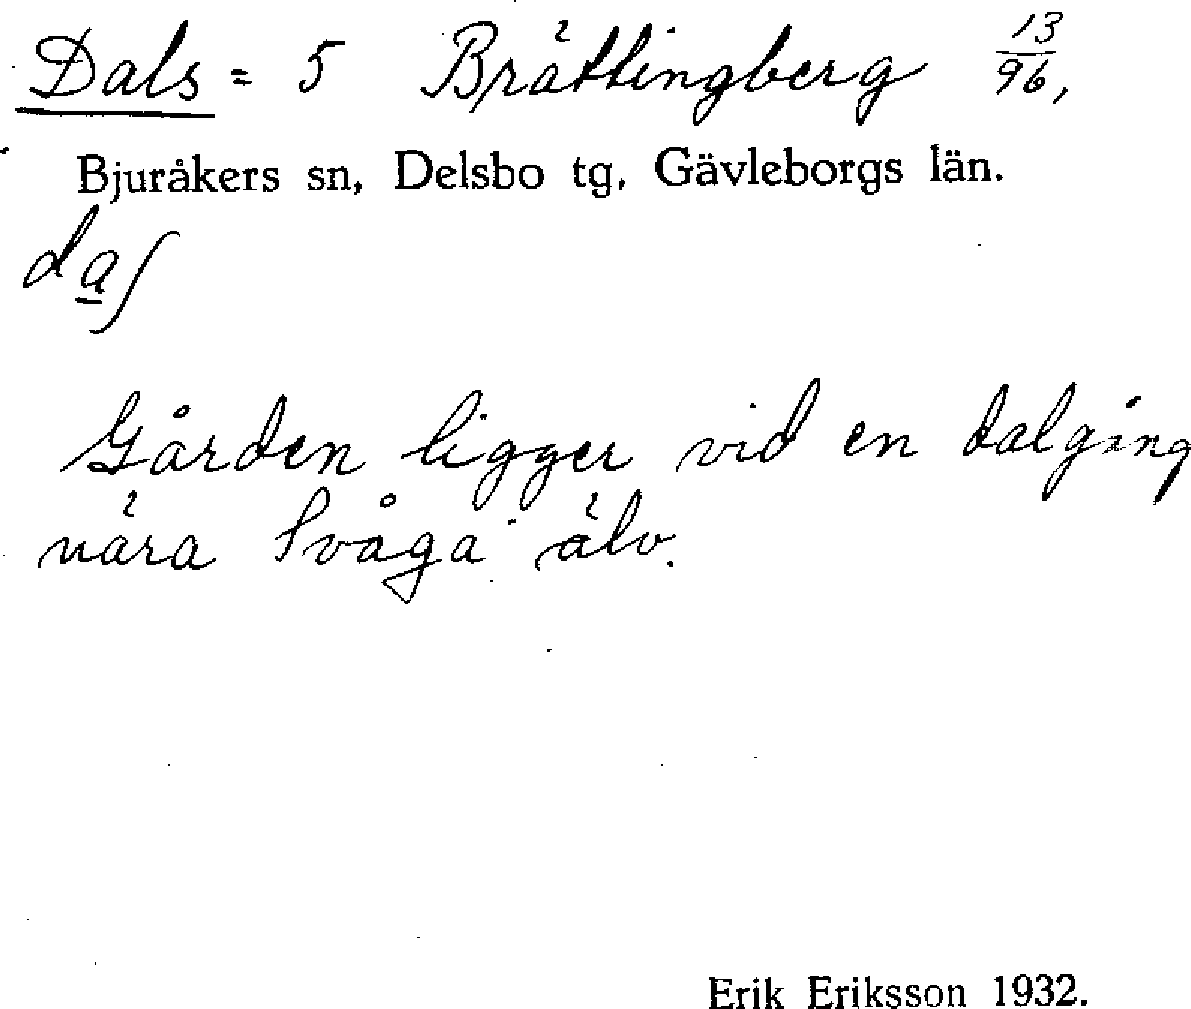 Dals = 5 Brättingberg 13/96,
Bjuråkers sn, Delsbo tg, Gävleborgs län.
daʃ
Gården ligger vid en dalgång
nära Svåga älv.
Erik Eriksson 1932.